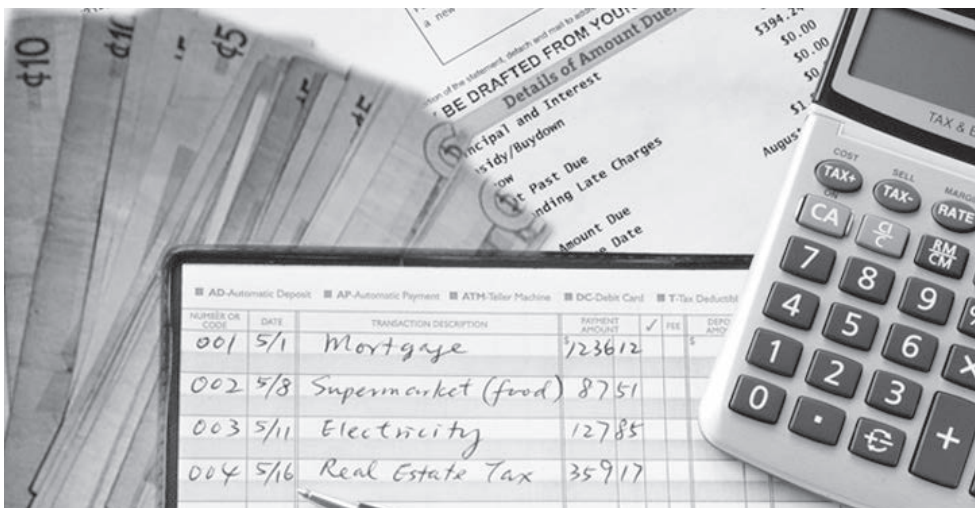 ¢10
¢5
a new
tion of the statement, detach and mail to addre
BE DRAFTED FROM YOUR
Details of Amount Due
ncipal and Interest
sidy/Buydown
ow
t Past Due
nding Late Charges
Amount Due
e Date
$394.24
$0.00
$0.00
$0
$1
Augus
TAX &
COST
SELL
TAX+
TAX-
RATE
ON
CA
CI/C
RM/CM
7 8 9
4 5 6 X
1 2 3
0 . +
AD-Automatic Deposit AP-Automatic Payment ATM-Teller Machine DC-Debit Card T-Tax Deductibl
NUMBER OR CODE DATE TRANSACTION DESCRIPTION PAYMENT AMOUNT ✓ FEE DEPO AMO
001 5/1 Mortgage $123612 $
002 5/8 Supermarket (food) 8751
003 5/11 Electricity 12785
004 5/16 Real Estate Tax 35917